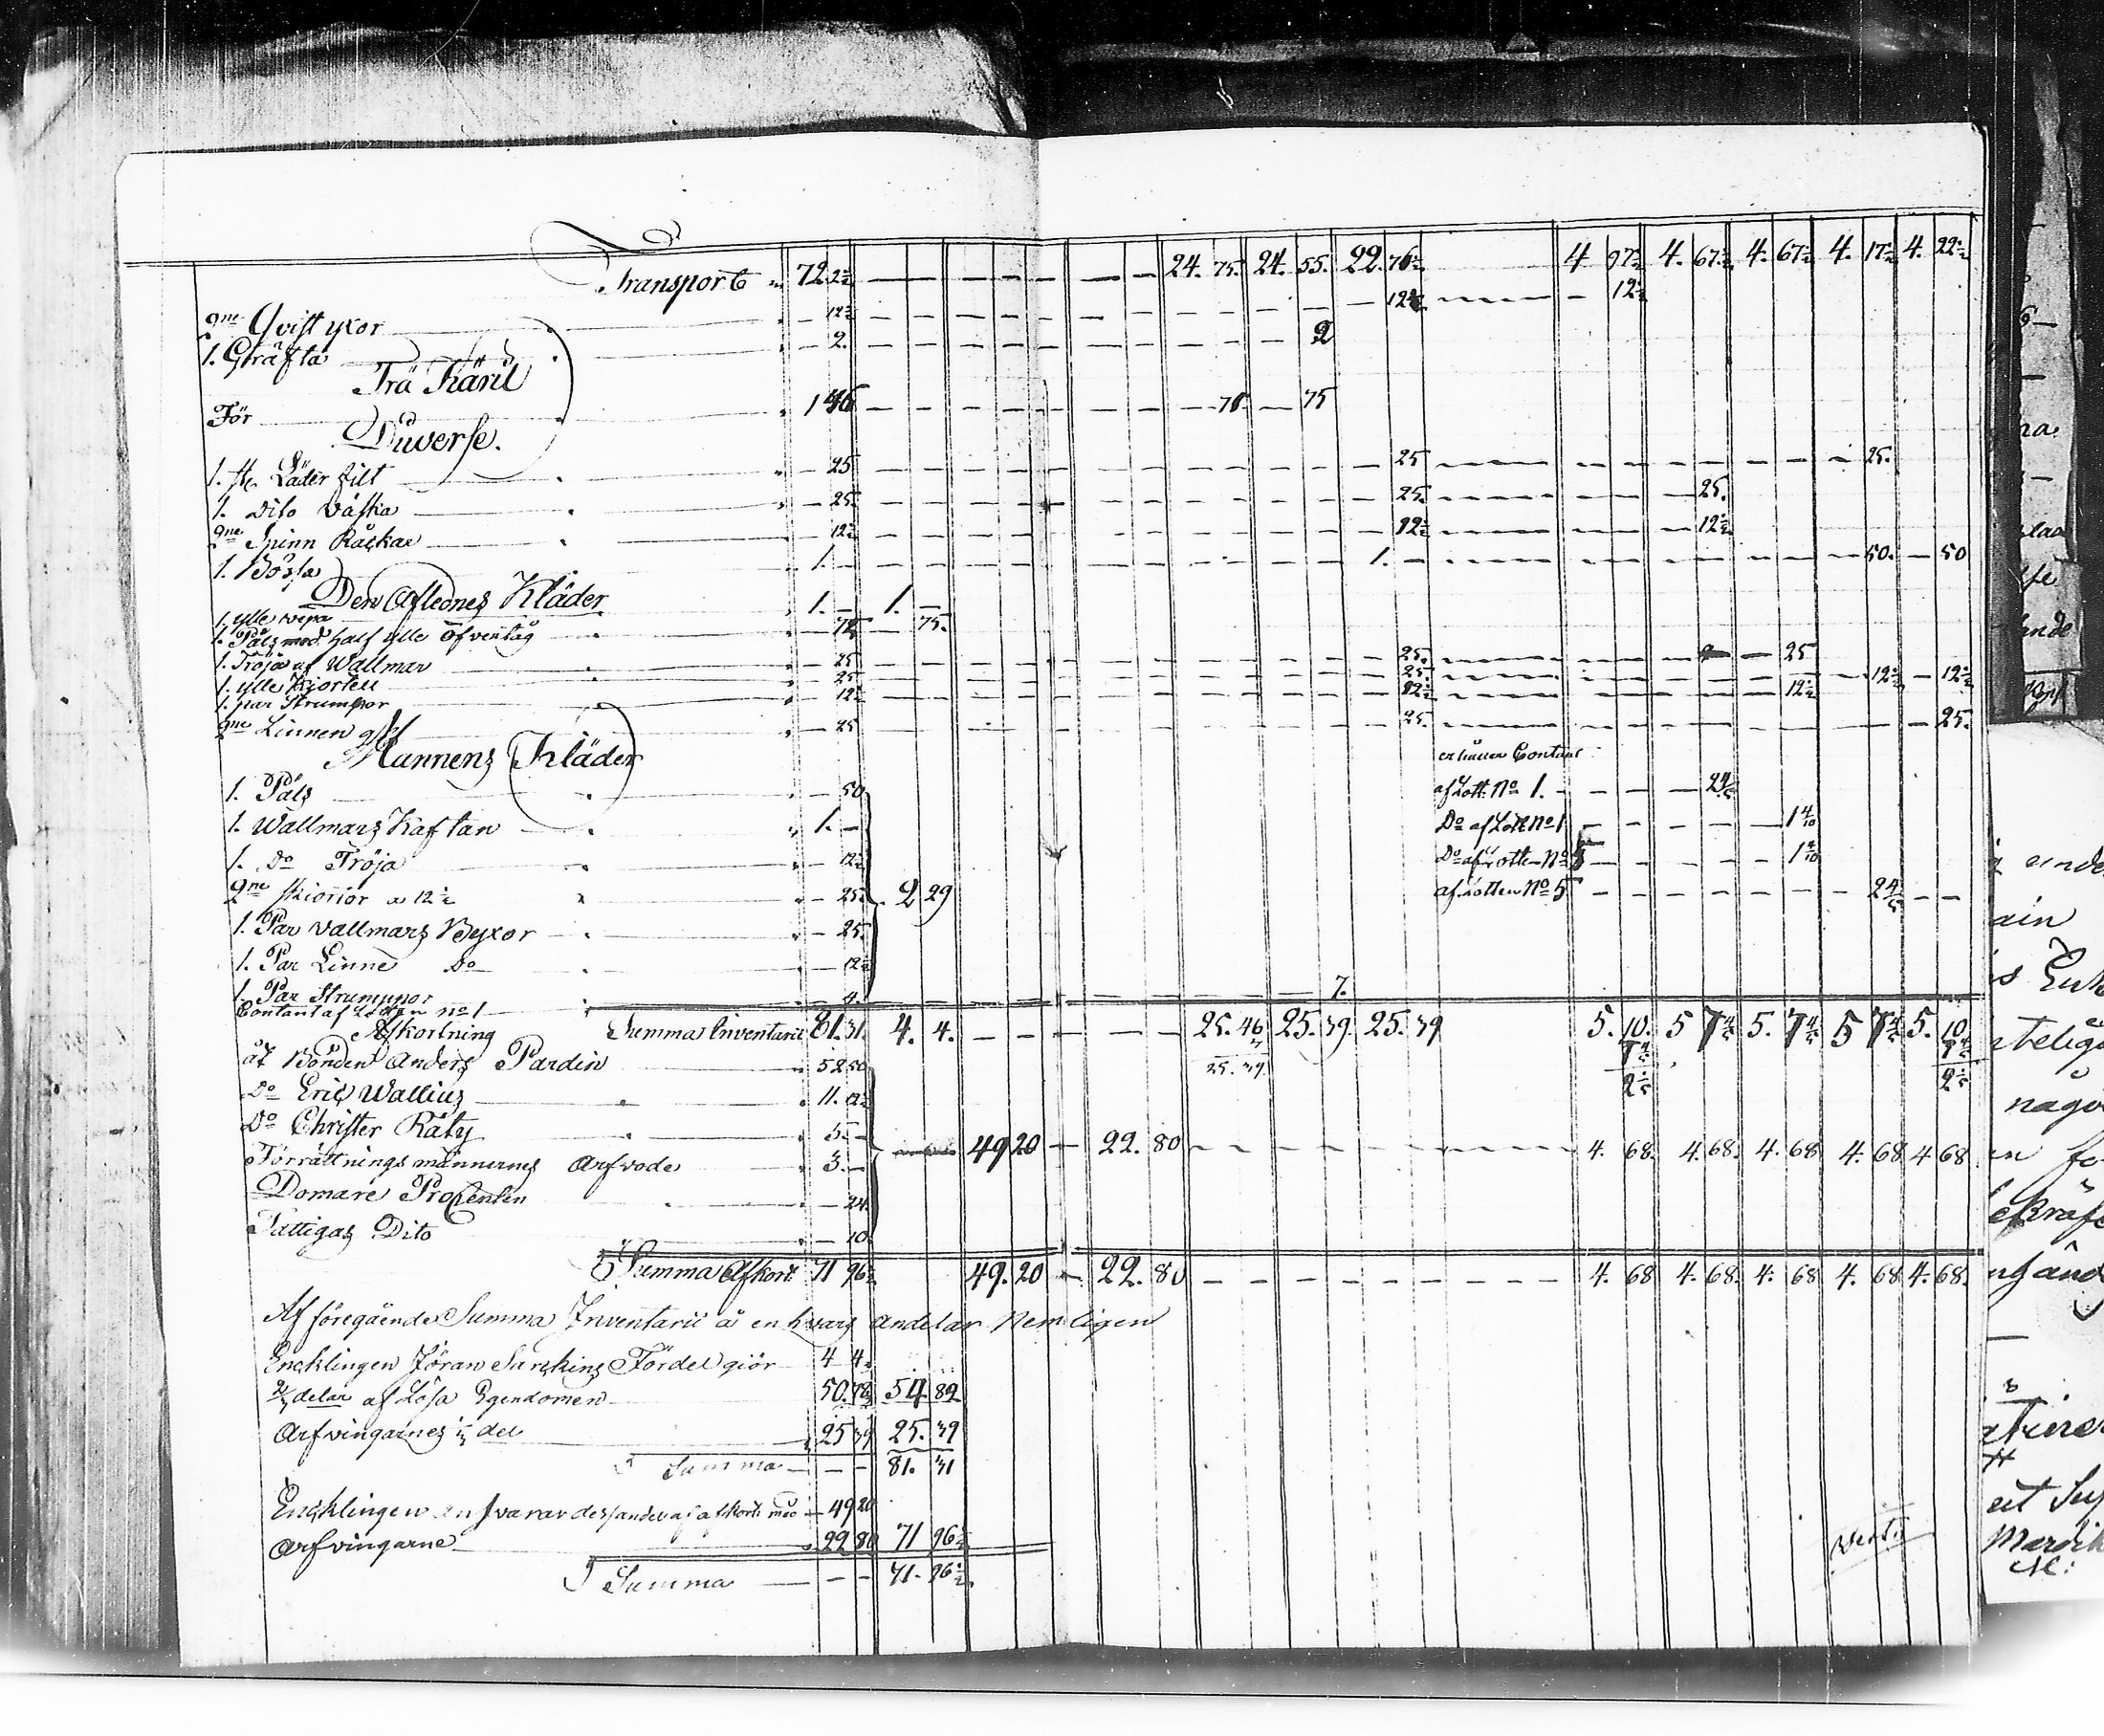 Transport 72 2½ — — — — 24. 75. 24. 55. 22. 76½ 4 97½ 4. 67½ 4. 67½ 4. 17½ 4. 22½
2ne Qvist yxor — 12½ — — — 12½ — — 12½
1. Gräfta — 2. — — — 2
Trä Käril
För 1 46 — — — 71 — 75
Diverse.
1. st. Läder filt — 25 — — — 25 — — 25.
1. Dito väska — 25 — — — 25. — — 25.
2ne Spinn Råckar — 12½ — — — 12½ — — 12½
1. Bössa 1. — — — 1. — — 50. — 50
Den Aflednes Kläder
1. ylle vepa 1. — 1. —
1. Påls med half ylle öfvertåg — 75 — 75.
1. Tröja af Wallmar — 25 — — — 25. — — 25
1. ylle Kiortell — 25 — — — 25. — — 12½ — 12½
1. par Strumpor — 12½ — — — 12½ — — 12½
2ne Linnen — 25 — — — 25. — — 25.
Mannens Kläder
1. Päls — 50 af Lott. No 1. — — 2⅘
1. Wallmars Kaftan 1. — Do af Lott No 1 — — 1 4/10
1. Do Tröja — 12½ Do af Lotten No 5 — — 1 4/10
2ne Skiortor a 12½ — 25 2 29 af Lotten No 5 — — 2⅘ — —
1. Par vallmars Byxor — 25
1. Par Linne Do — 12½
1. Par Strumpor — 4.
Contant af Lotten no 1 — — — 7.
Afkortning Summa Inventarii 81. 31. 4. 4. — — — 25. 46 25. 39. 25. 39 5. 10. 5 7⅘ 5. 7⅘ 5 7⅘ 5. 10
åt Bonden Anders Pardin 52 50 7 7⅘ 7⅘
25. 39 2⅕ 2⅕
Do Eric Wallius 11. 12½
Do Christer Räty 5. —
Förrättnings männernes Arfvode 3. — 49 20 — 22. 80 — — — 4. 68. 4. 68. 4. 68 4. 68 4 68
Domare Procenten — 24
Fattigas Dito — 10
Summa Afkort. 71 96½ 49. 20 — 22. 80 — — — 4. 68 4. 68. 4. 68 4. 68 4. 68.
Af föregående Summa Inventarii är en hvars andelar Nemligen
Encklingen Jöran Sarckins Fördel giör 4 4.
⅔ delar af Lösa Egendomen 50. 78 54. 82
Arfvingarnes ⅓ del 25 39 25. 39
Summa — — 81. 31
Encklingen ansvarar dess andel af afkortn. med — 49 20
Arfvingarne 22 80 71 96½
Summa — — 71. 96½
Verte